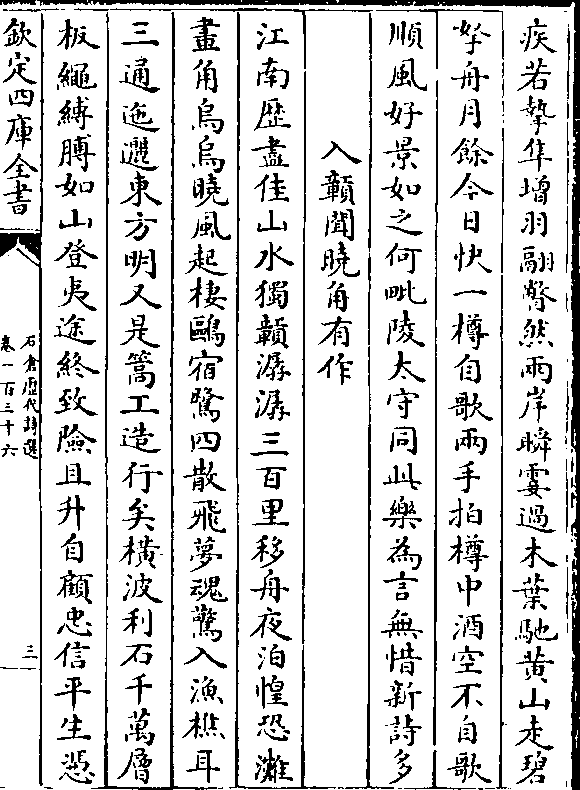 疾若摯隼增羽翮瞥然兩岸瞬霎過木葉馳黄山走碧
孥舟月餘今日快一樽自歌兩手拍樽中酒空不自歌
順風好景如之何毗陵太守同此樂為言無惜新詩多
入贑聞曉角有作
江南歴盡佳山水獨贑潺潺三百里移舟夜泊惶恐灘
畫角烏烏曉風起棲鷗宿鷺四散飛夢魂驚入漁樵耳
三通迤邐東方明又是篙工造行矣橫波利石千萬層
板繩縛膊如山登夷途終致險且升自顧忠信平生憑
欽定四庫全書
石倉歴代詩選
卷一百三十六
三